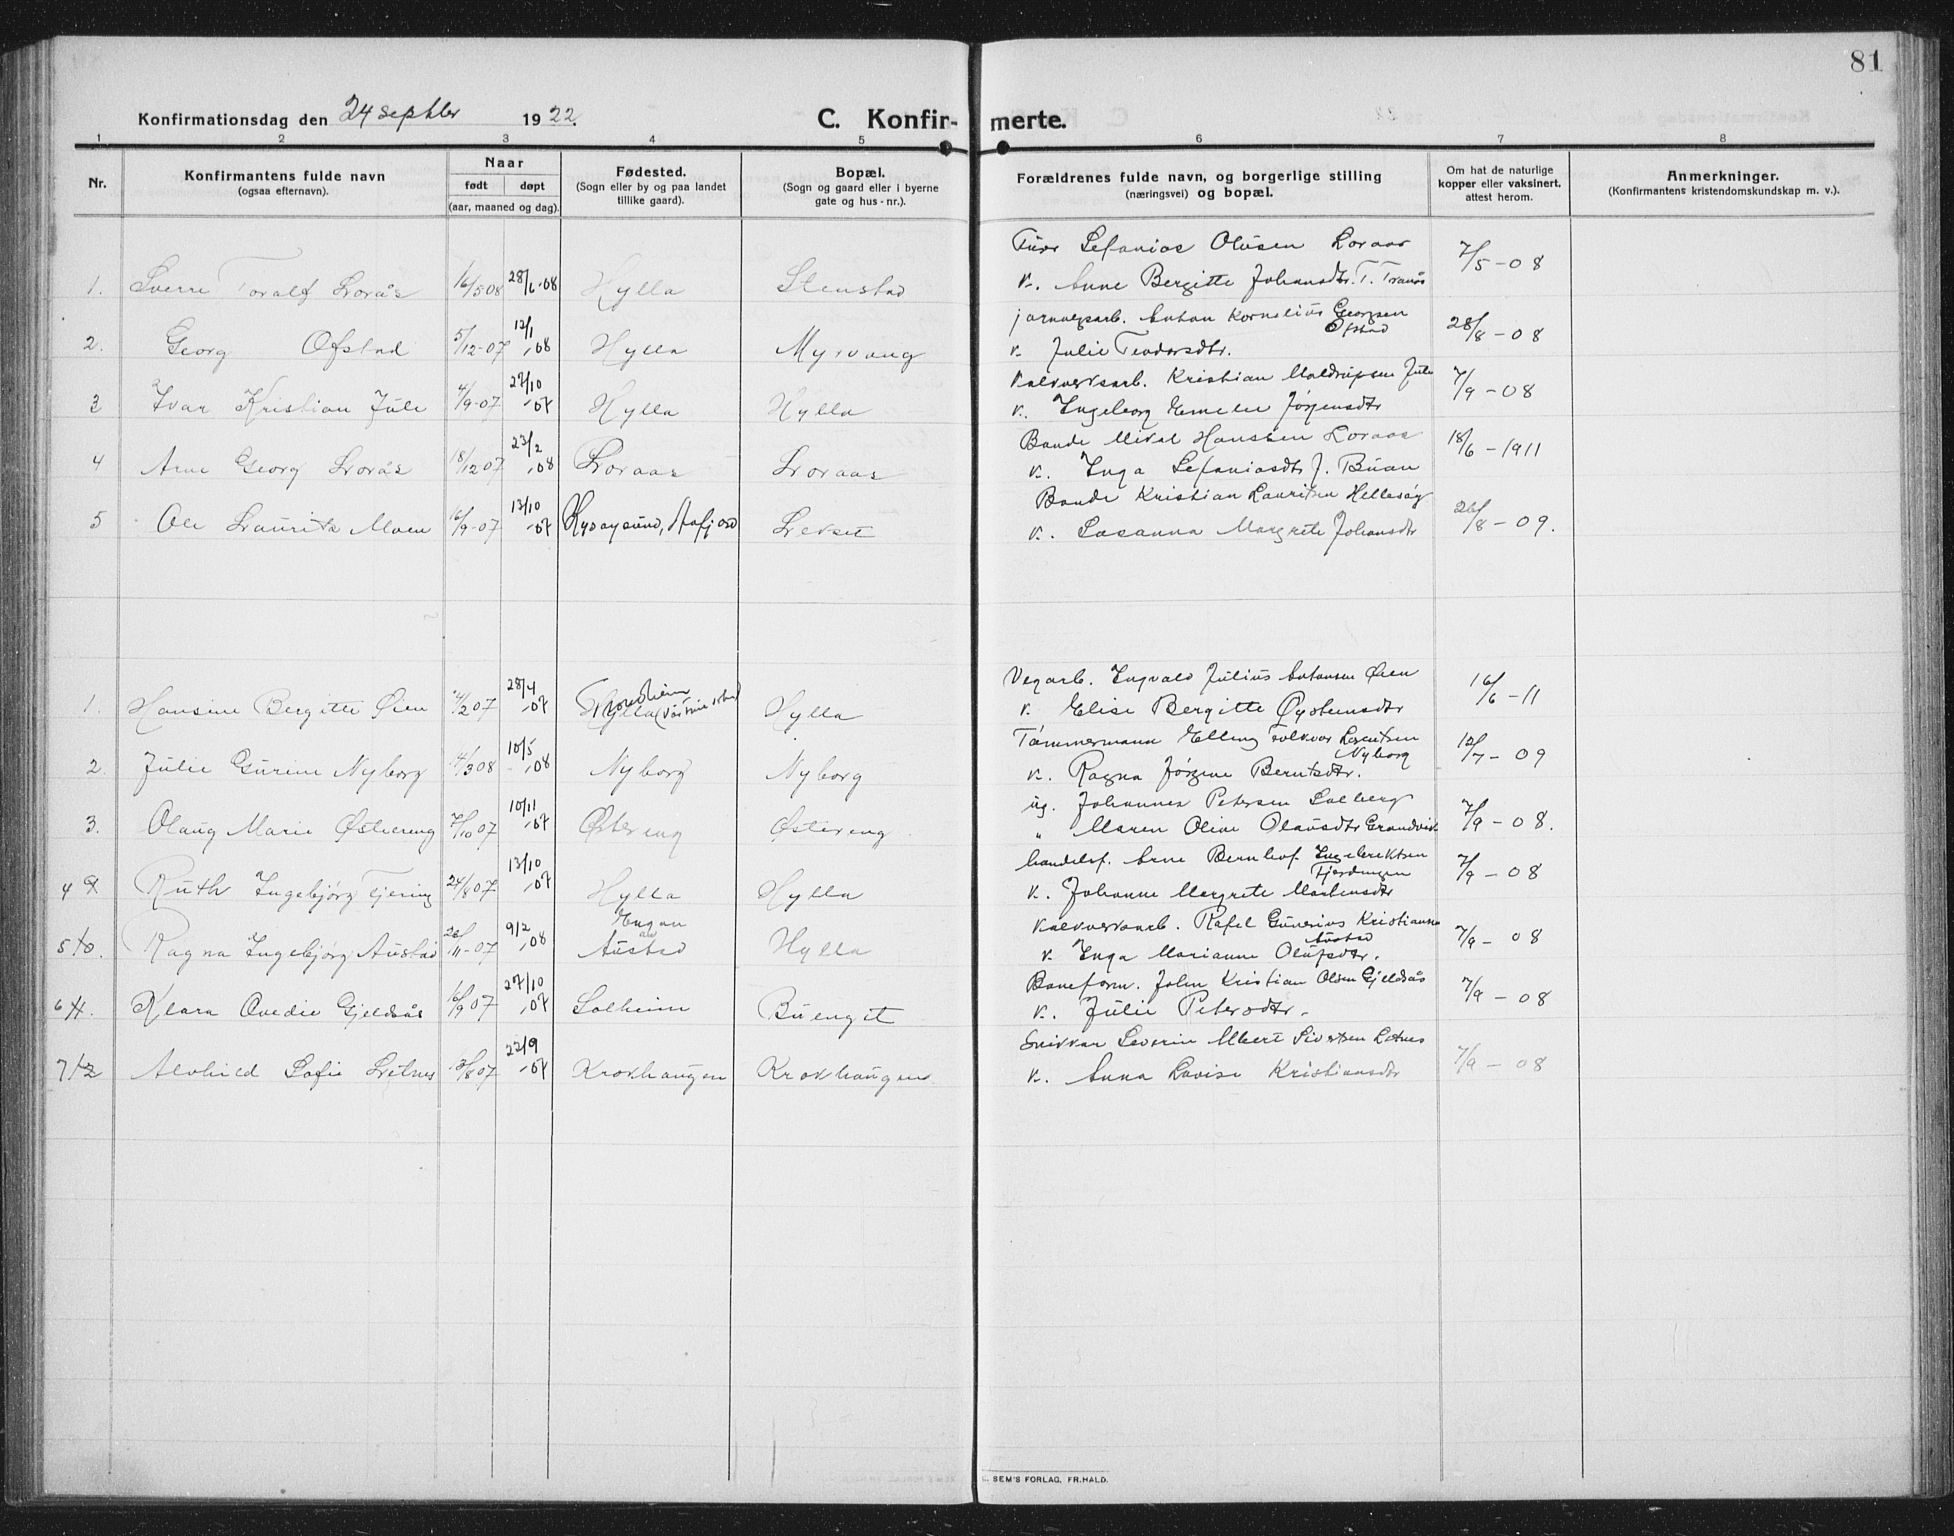 81
Konfirmationsdag den 24 septbr 1922.
C. Konfir- merte.
1 2 3 4 5 6 7 8
Nr.
Konfirmantens fulde navn
(ogsaa efternavn).
Naar
født døpt
(aar, maaned og dag).
Fødested.
(Sogn eller by og paa landet
tillike gaard).
Bopæl.
(Sogn og gaard eller i byerne
gate og hus-nr.).
Forældrenes fulde navn, og borgerlige stilling
(næringsvei) og bopæl.
Om hat de naturlige
kopper eller vaksinert.
attest herom.
Anmerkninger.
(Konfirmantens kristendomskundskap m. v.).
Sefanias Olusen Loraas
1. Sverre Toralf Lorås 16/5 08 28/6-08 Hylla Stenstad 7/5-08
k. Anne Bergitte Johansdtr. T. Tranås
jarnvegsarb. Anton Kornelius Georgsen
Ofstad
2. Georg Ofstad 5/12-07 12/1 ,08 Hylla Myrvang 28/8-08
k. Julie Teodorsdtr.
Kalkverksarb. Kristian Maldrupsen Jule
3 Ivar Kristian Jule 4/9-07 27/10 ,07 Hylla Hylla 7/9-08
k. Ingeborg Emelie Jørgensdtr
Bonde Mikal Hansen Loraas
4 Arne Georg Lorås 18/12 07 23/2 ,08 Loraas Loraas 18/6-1911
k. Inga Sefaniasdtr J. Buan
Bonde Kristian Lauritsen Hellesøg
5 Ole Laurits Moen 16/9-07 13/10 ,07 Aafjord Levset 26/8-09.
k. Susanna Margrete Johansdtr
Vegarb. Ingvald Julius Antonsen Øien
1. Hansine Bergitte Øien 4/2 07 28/4 ,07 Hylla 16/6-11
k. Elise Bergitte Øysteinsdtr
Tømmermann Elling Folkvar Lorentsen
Nyborg
2. Julie Gurine Nyborg 14/3 08 10/5 ,08 Nyborg Nyborg 12/7-09
k. Ragna Jørgine Berntsdtr.
ug. Johannes Petersen Solberg
3. Olaug Marie Østereng 7/10 07 10/11 ,07 Østereng Østereng 7/9-08.
" Maren Oline Olausdtr Grandvik
handelsf. Arne Bernhof. Ingebrektsen
Fjerdingen
4 9 Ruth Ingebjørg Fjering 24/8 07 13/10 ,07 Hylla Hylla 7/9-08
k. Johanne Margrete Mortensdtr
Kalkverksarb. Rafel Gunerius Kristiansen
Austad
5 10. Ragna Ingebjørg Austad 26/11-07 9/2 ,08 Engan Austad Hylla 7/9-08
k. Inga Marianne Olufsdtr.
Baneform. John Kristian Olsen Gjeldsås
6 11. Klara Ovedie Gjeldsås 16/9 07 27/10 ,07 Solheim Buenget 7/9-08
k. Julie Petersdtr.
Snikkar Severin Albert Sivertsen Letnes
7 12 Alvhild Sofie Letnes 3/8 07 22/9 ,07 Krokhaugen Krokhaugen 7/9-08
k. Anna Lovise Kristiansdtr
SEM'S FORLAG, FR. HALD.